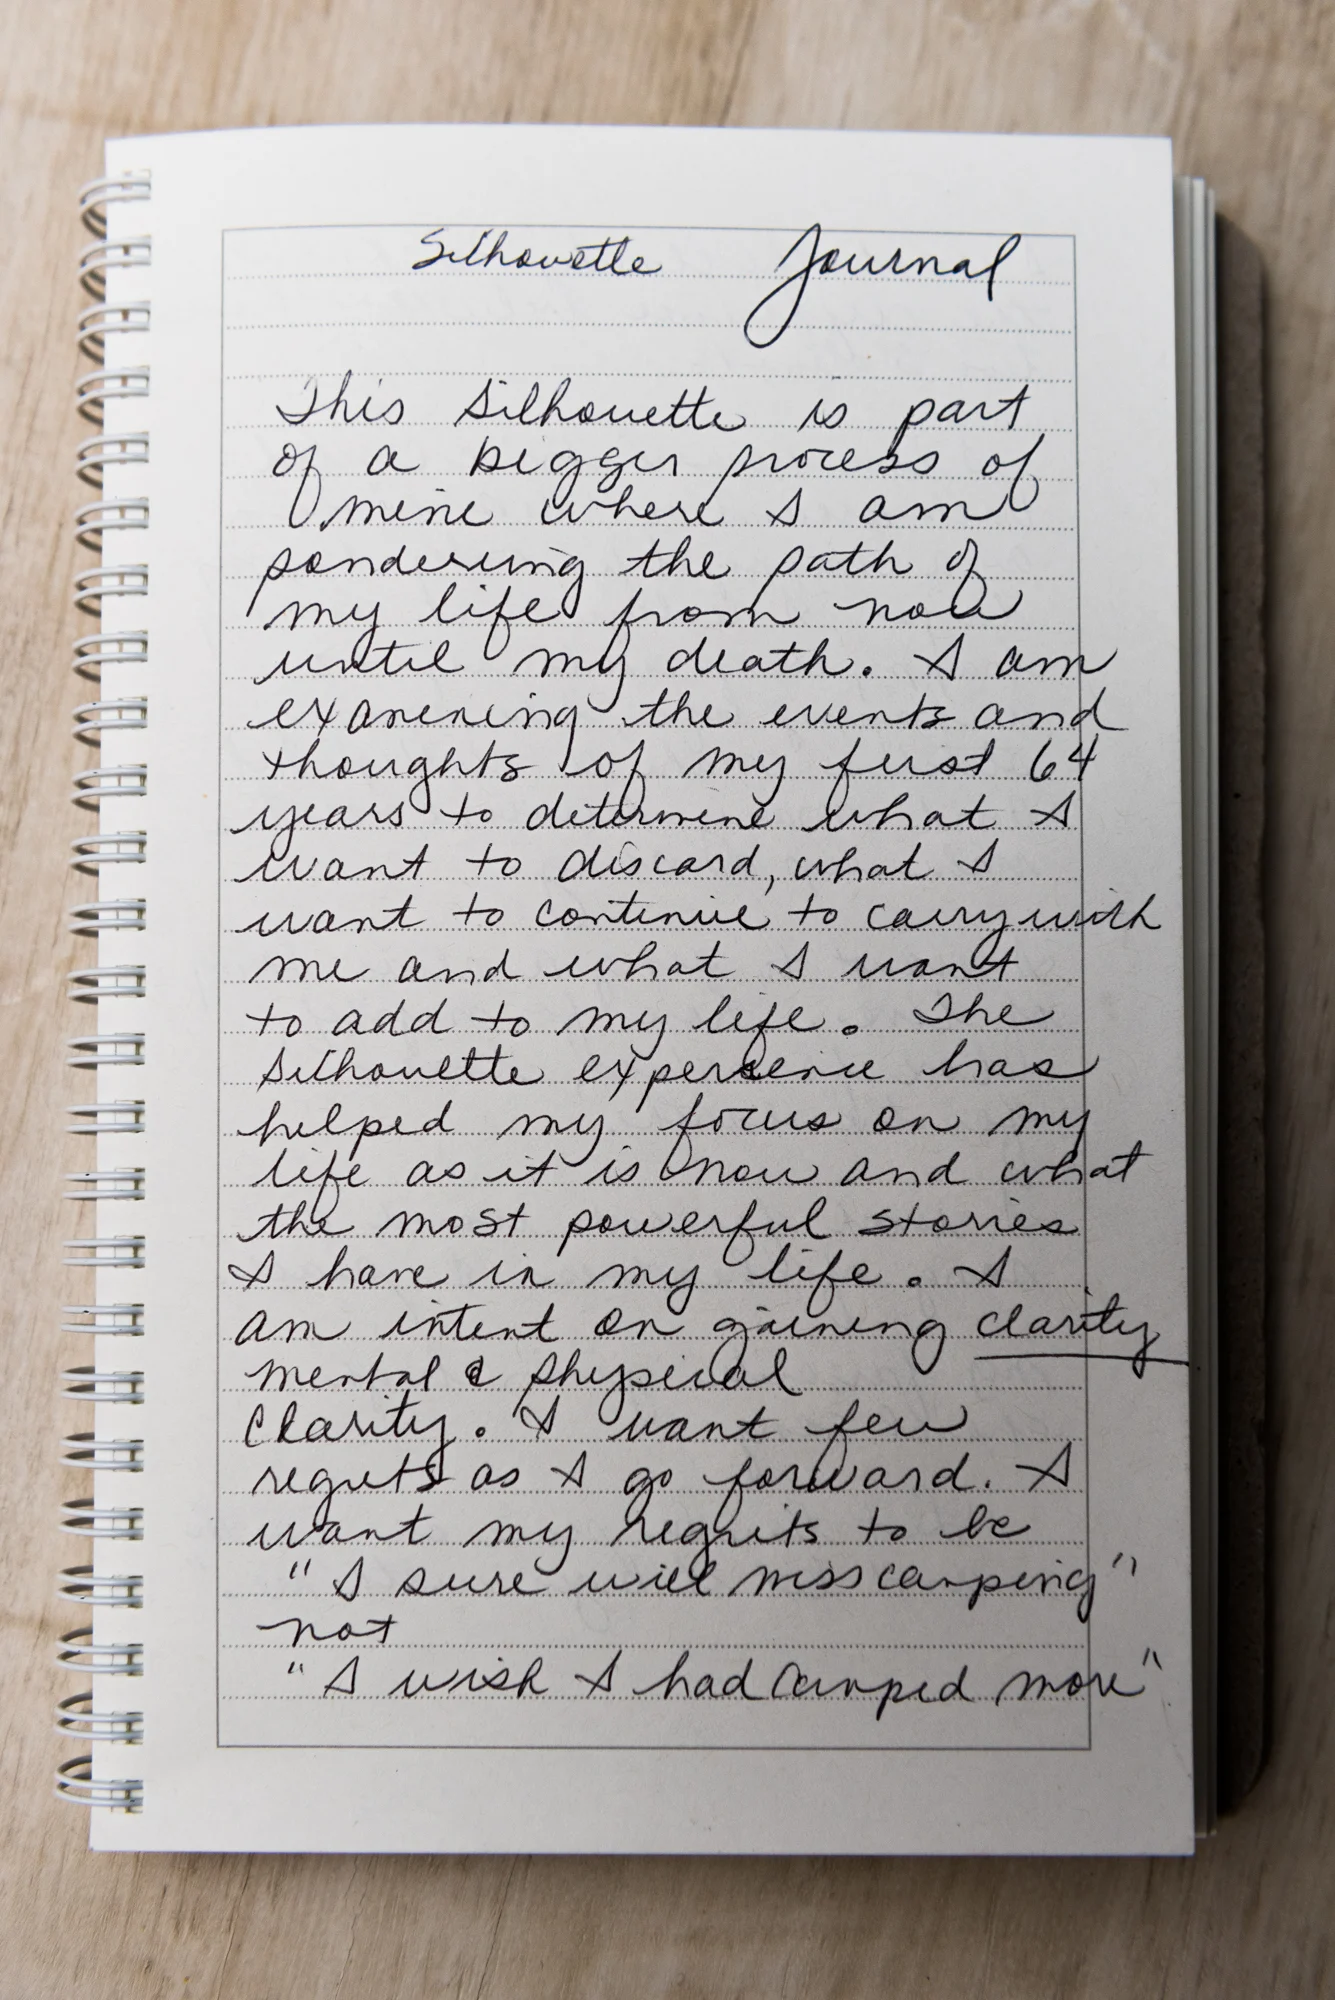 Silhouette Journal
This Silhouette is part
of a bigger process of
mine where I am
pondering the path of
my life from now
until my death. I am
examening the events and
thoughts of my first 64
years to determine what I
want to discard, what I
want to continue to carry with
me and what I want
to add to my life. The
Silhouette experience has
helped my focus on my
life as it is now and what
the most powerful stories
I have in my life. I
am intent on gaining clarity
mental & physical
Clarity. I want few
regrets as I go forward. I
want my regrets to be
"I sure will miss camping"
not
"I wish I had Camped more"